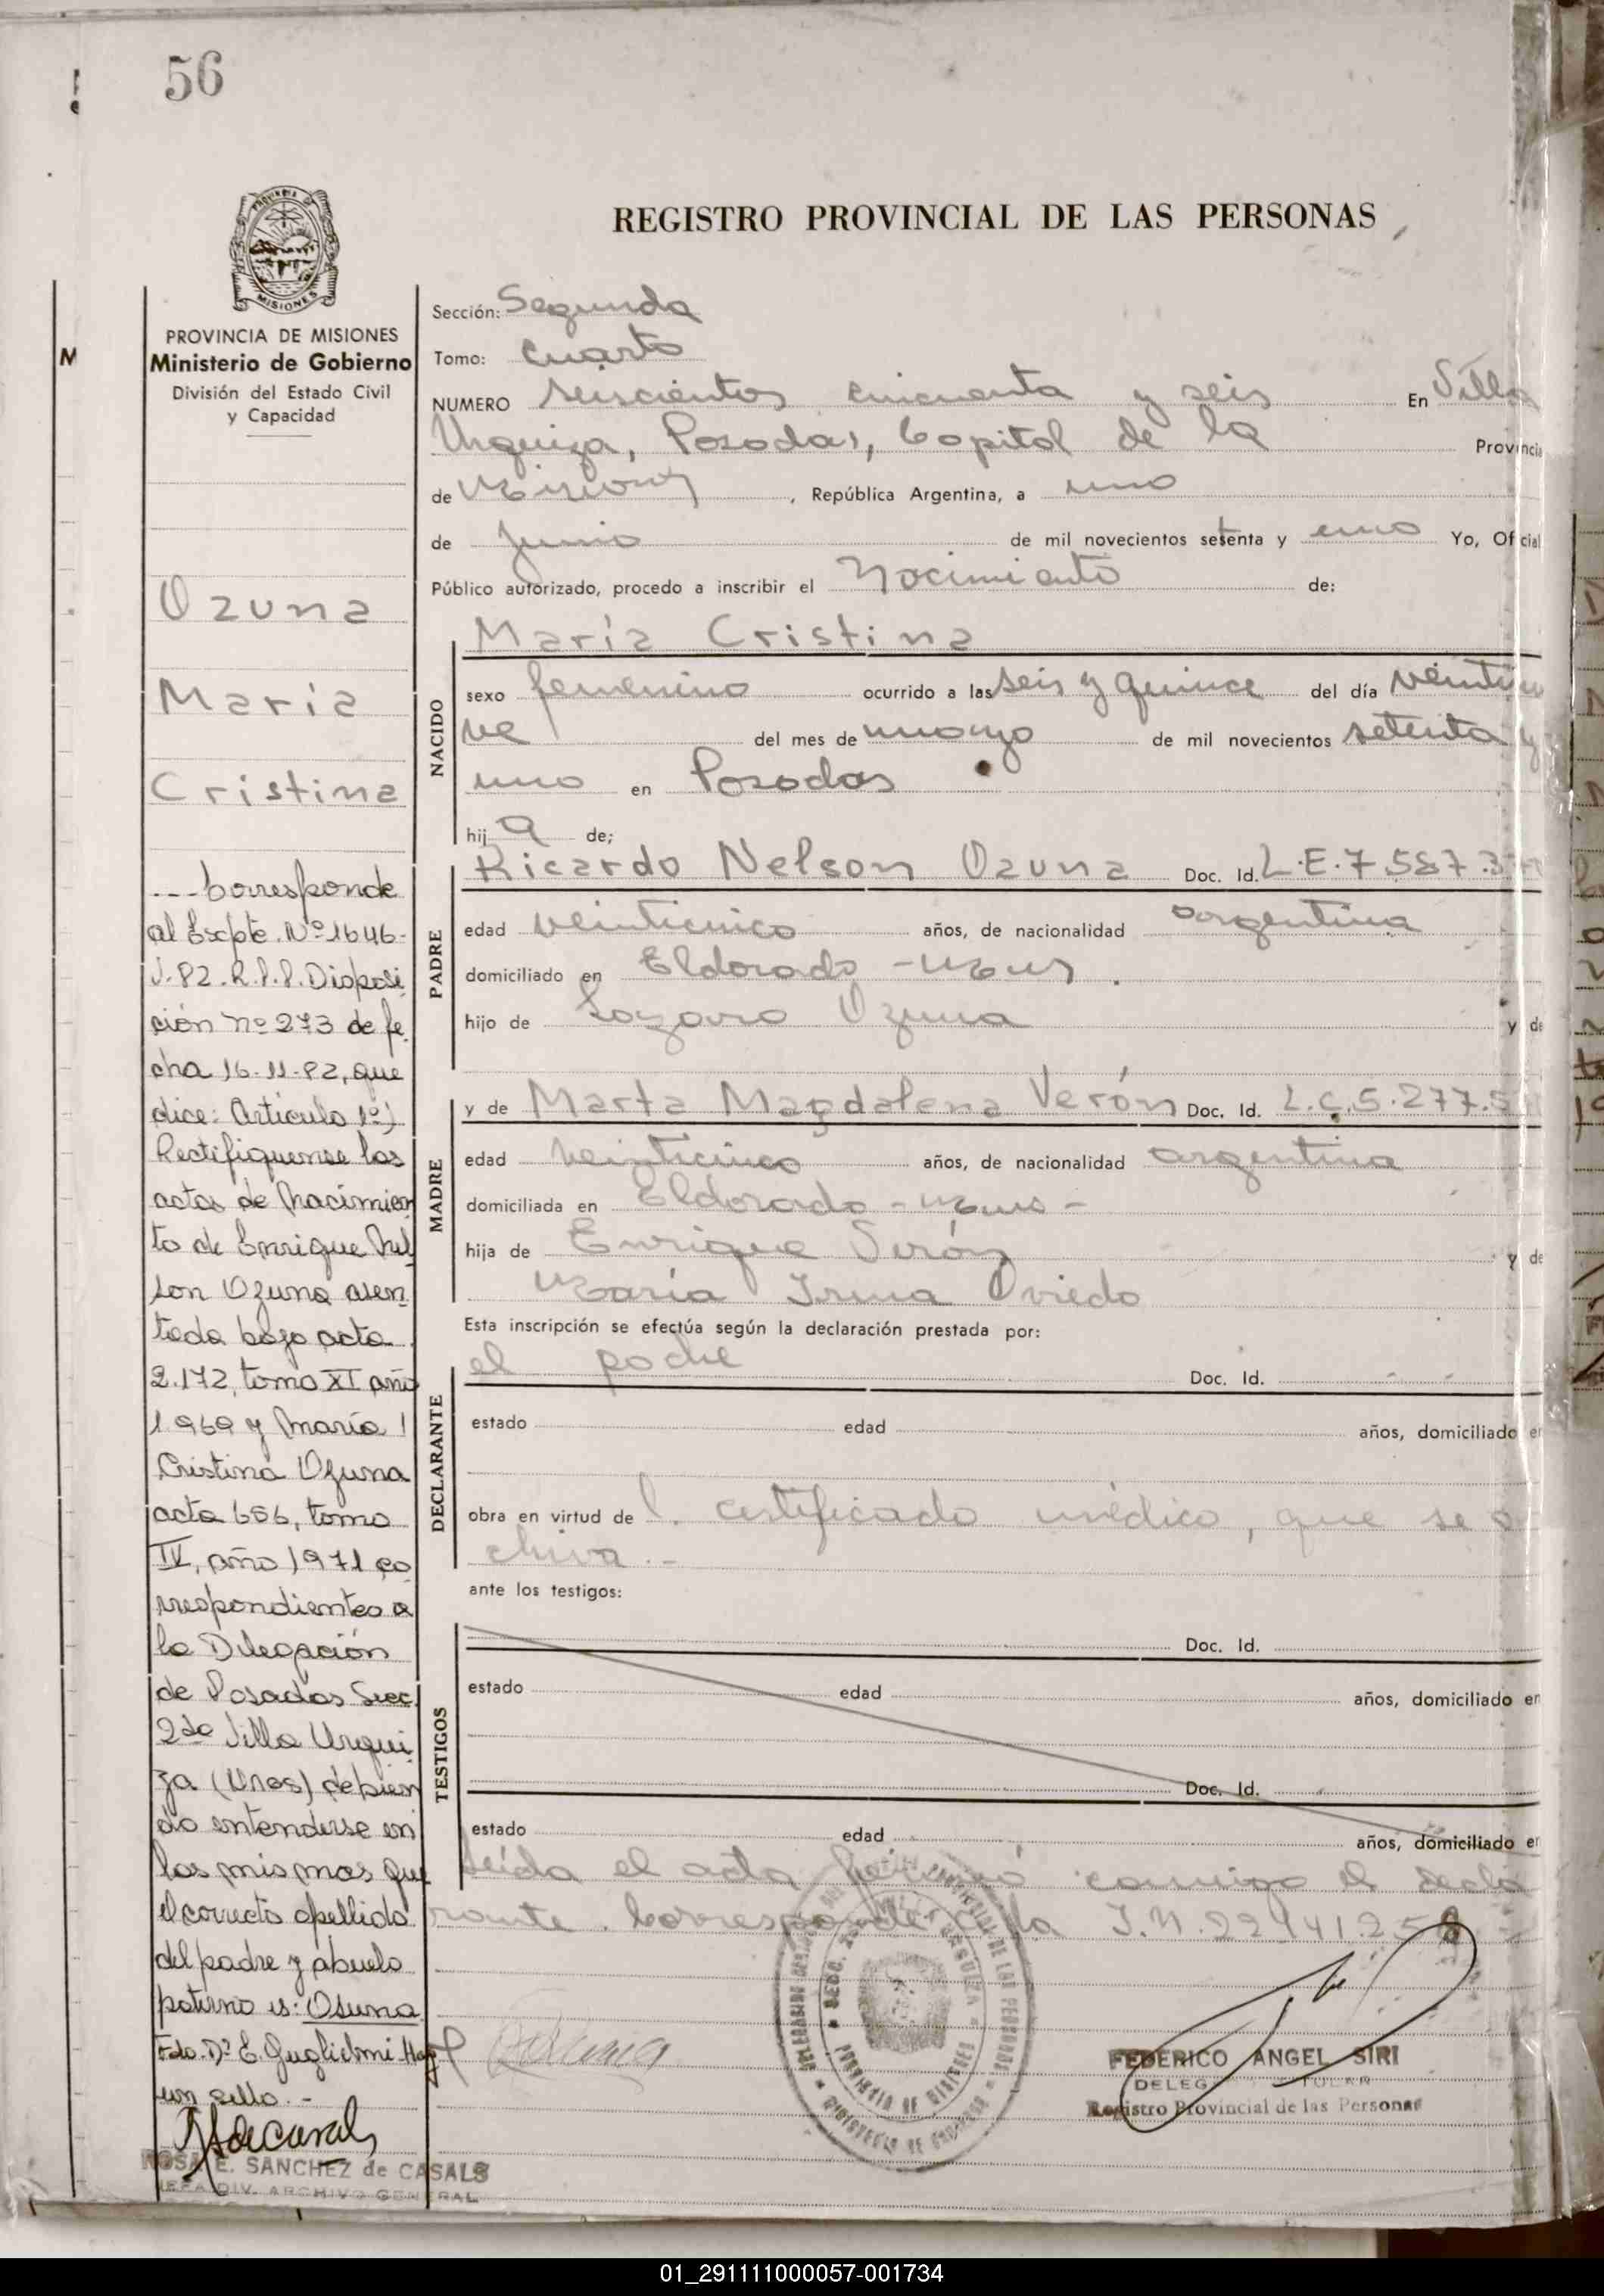 56
REGISTRO PROVINCIAL DE LAS PERSONAS
PROVINCIA DE MISIONES
Ministerio de Gobierno
División del Estado Civil
y Capacidad
Ozuna
María
Cristina
--- Corresponde
al Escpte. Nº 1646-
J-82. R.P.P. Disposi
ción nº 273 de fe
cha 16-11-82, que
dice: Artículo 1º)
Rectifiquense las
actas de Nacimien
to de Enrique Nel
son Ozuna asen
tada bajo acta
2.172, tomo XI año
1.969 y María
Cristina Ozuna
acta 656, tomo
IV, año 1971 co
rrespondientes a
la Delegación
de Posadas Secc.
2da Villa Urqui
za (Mnes) debien
do entenderse en
los mismos que
el correcto apellido
del padre y abuelo
paterno es: Osuna
Fdo. Dº E. Guglielmi. Hay
un sello.-
ROSA E. SANCHEZ de CASALS
JEFA DIV. ARCHIVO GENERAL
Sección: Segunda
Tomo: Cuarto
NUMERO seiscientos cincuenta y seis En Villa
Urquiza, Posadas, Capital de la Provincia
de Misiones, República Argentina, a uno
de Junio de mil novecientos setenta y uno Yo, Oficial
Público autorizado, procedo a inscribir el Nacimiento de:
NACIDO
María Cristina
sexo femenino ocurrido a las seis y quince del día veintinu
ve del mes de mayo de mil novecientos setenta y
uno en Posadas
hij a de;
PADRE
Ricardo Nelson Ozuna Doc. Id. L.E. 7.587.3
edad veinticinco años, de nacionalidad argentina
domiciliado en Eldorado - Mnes.
hijo de Lazaro Ozuna y de
MADRE
y de Marta Magdalena Verón Doc. Id. L.C. 5.277.5
edad veinticinco años, de nacionalidad argentina
domiciliada en Eldorado - Mnes -
hija de Enrique Verón y de
María Irma Oviedo
Esta inscripción se efectúa según la declaración prestada por:
DECLARANTE
el padre Doc. Id.
estado edad años, domiciliado en
obra en virtud de l. certificado médico, que se ar
chiva.-
ante los testigos:
TESTIGOS
Doc. Id.
estado edad años, domiciliado en
Doc. Id.
estado edad años, domiciliado en
Leída el acta firmó conmigo el decla
rante. Corresponde a la I.N. 22.941.258
FEDERICO ANGEL SIRI
Registro Provincial de las Personas
01_291111000057-001734